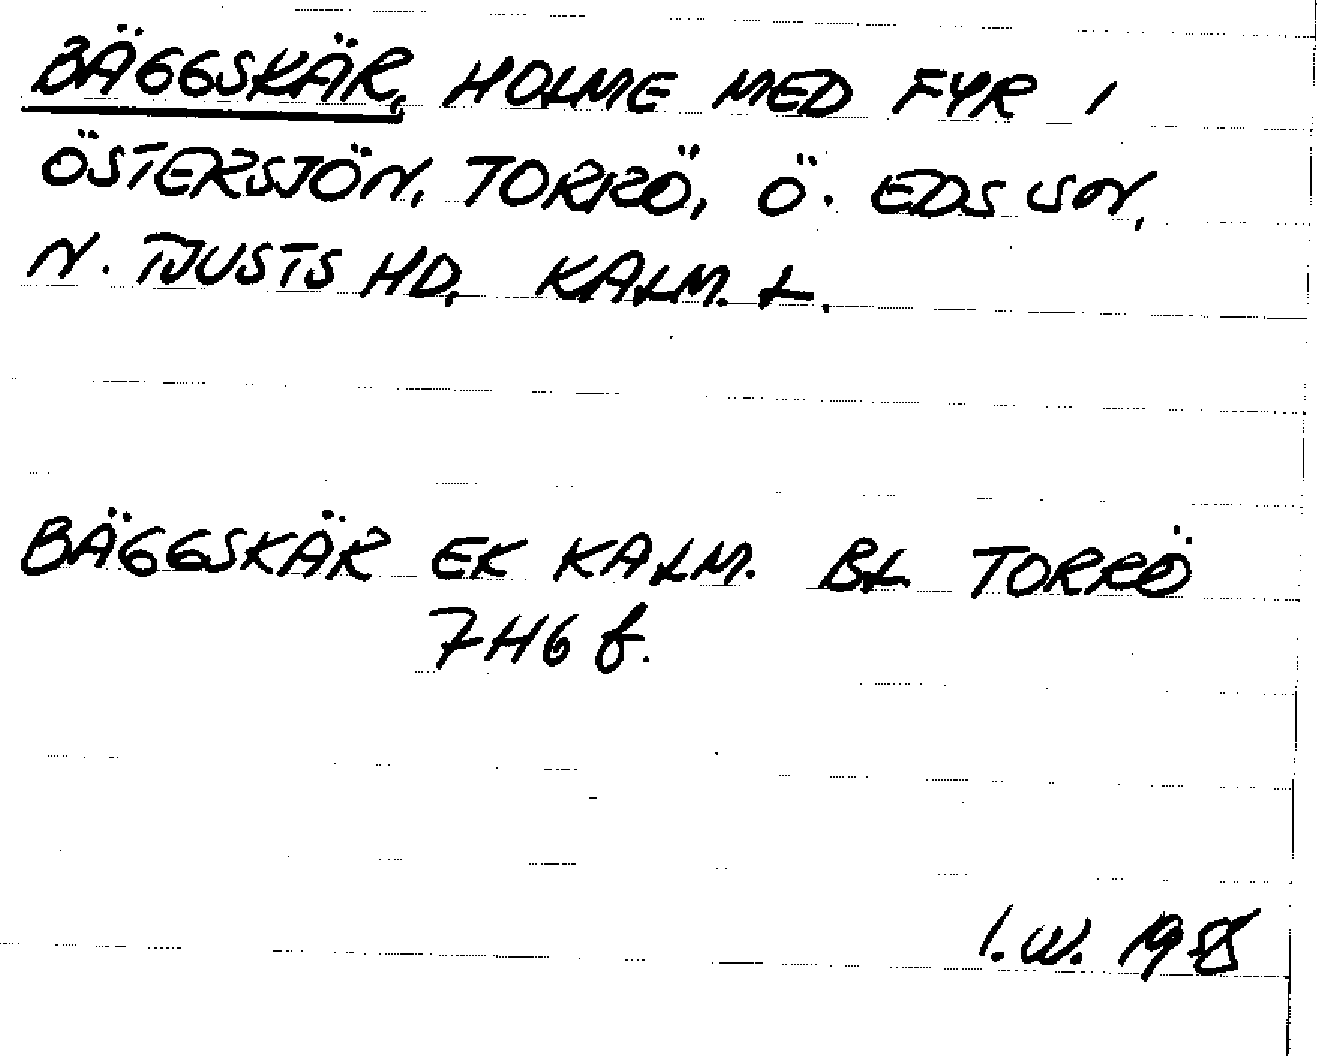 BÄGGSKÄR, HOLME MED FYR I
ÖSTERSJÖN, TORRÖ, Ö. EDS SN,
N. TJUSTS HD, KALM. L.
BÄGGSKÄR EK KALM. BL TORRÖ
7H6 f.
I.W.